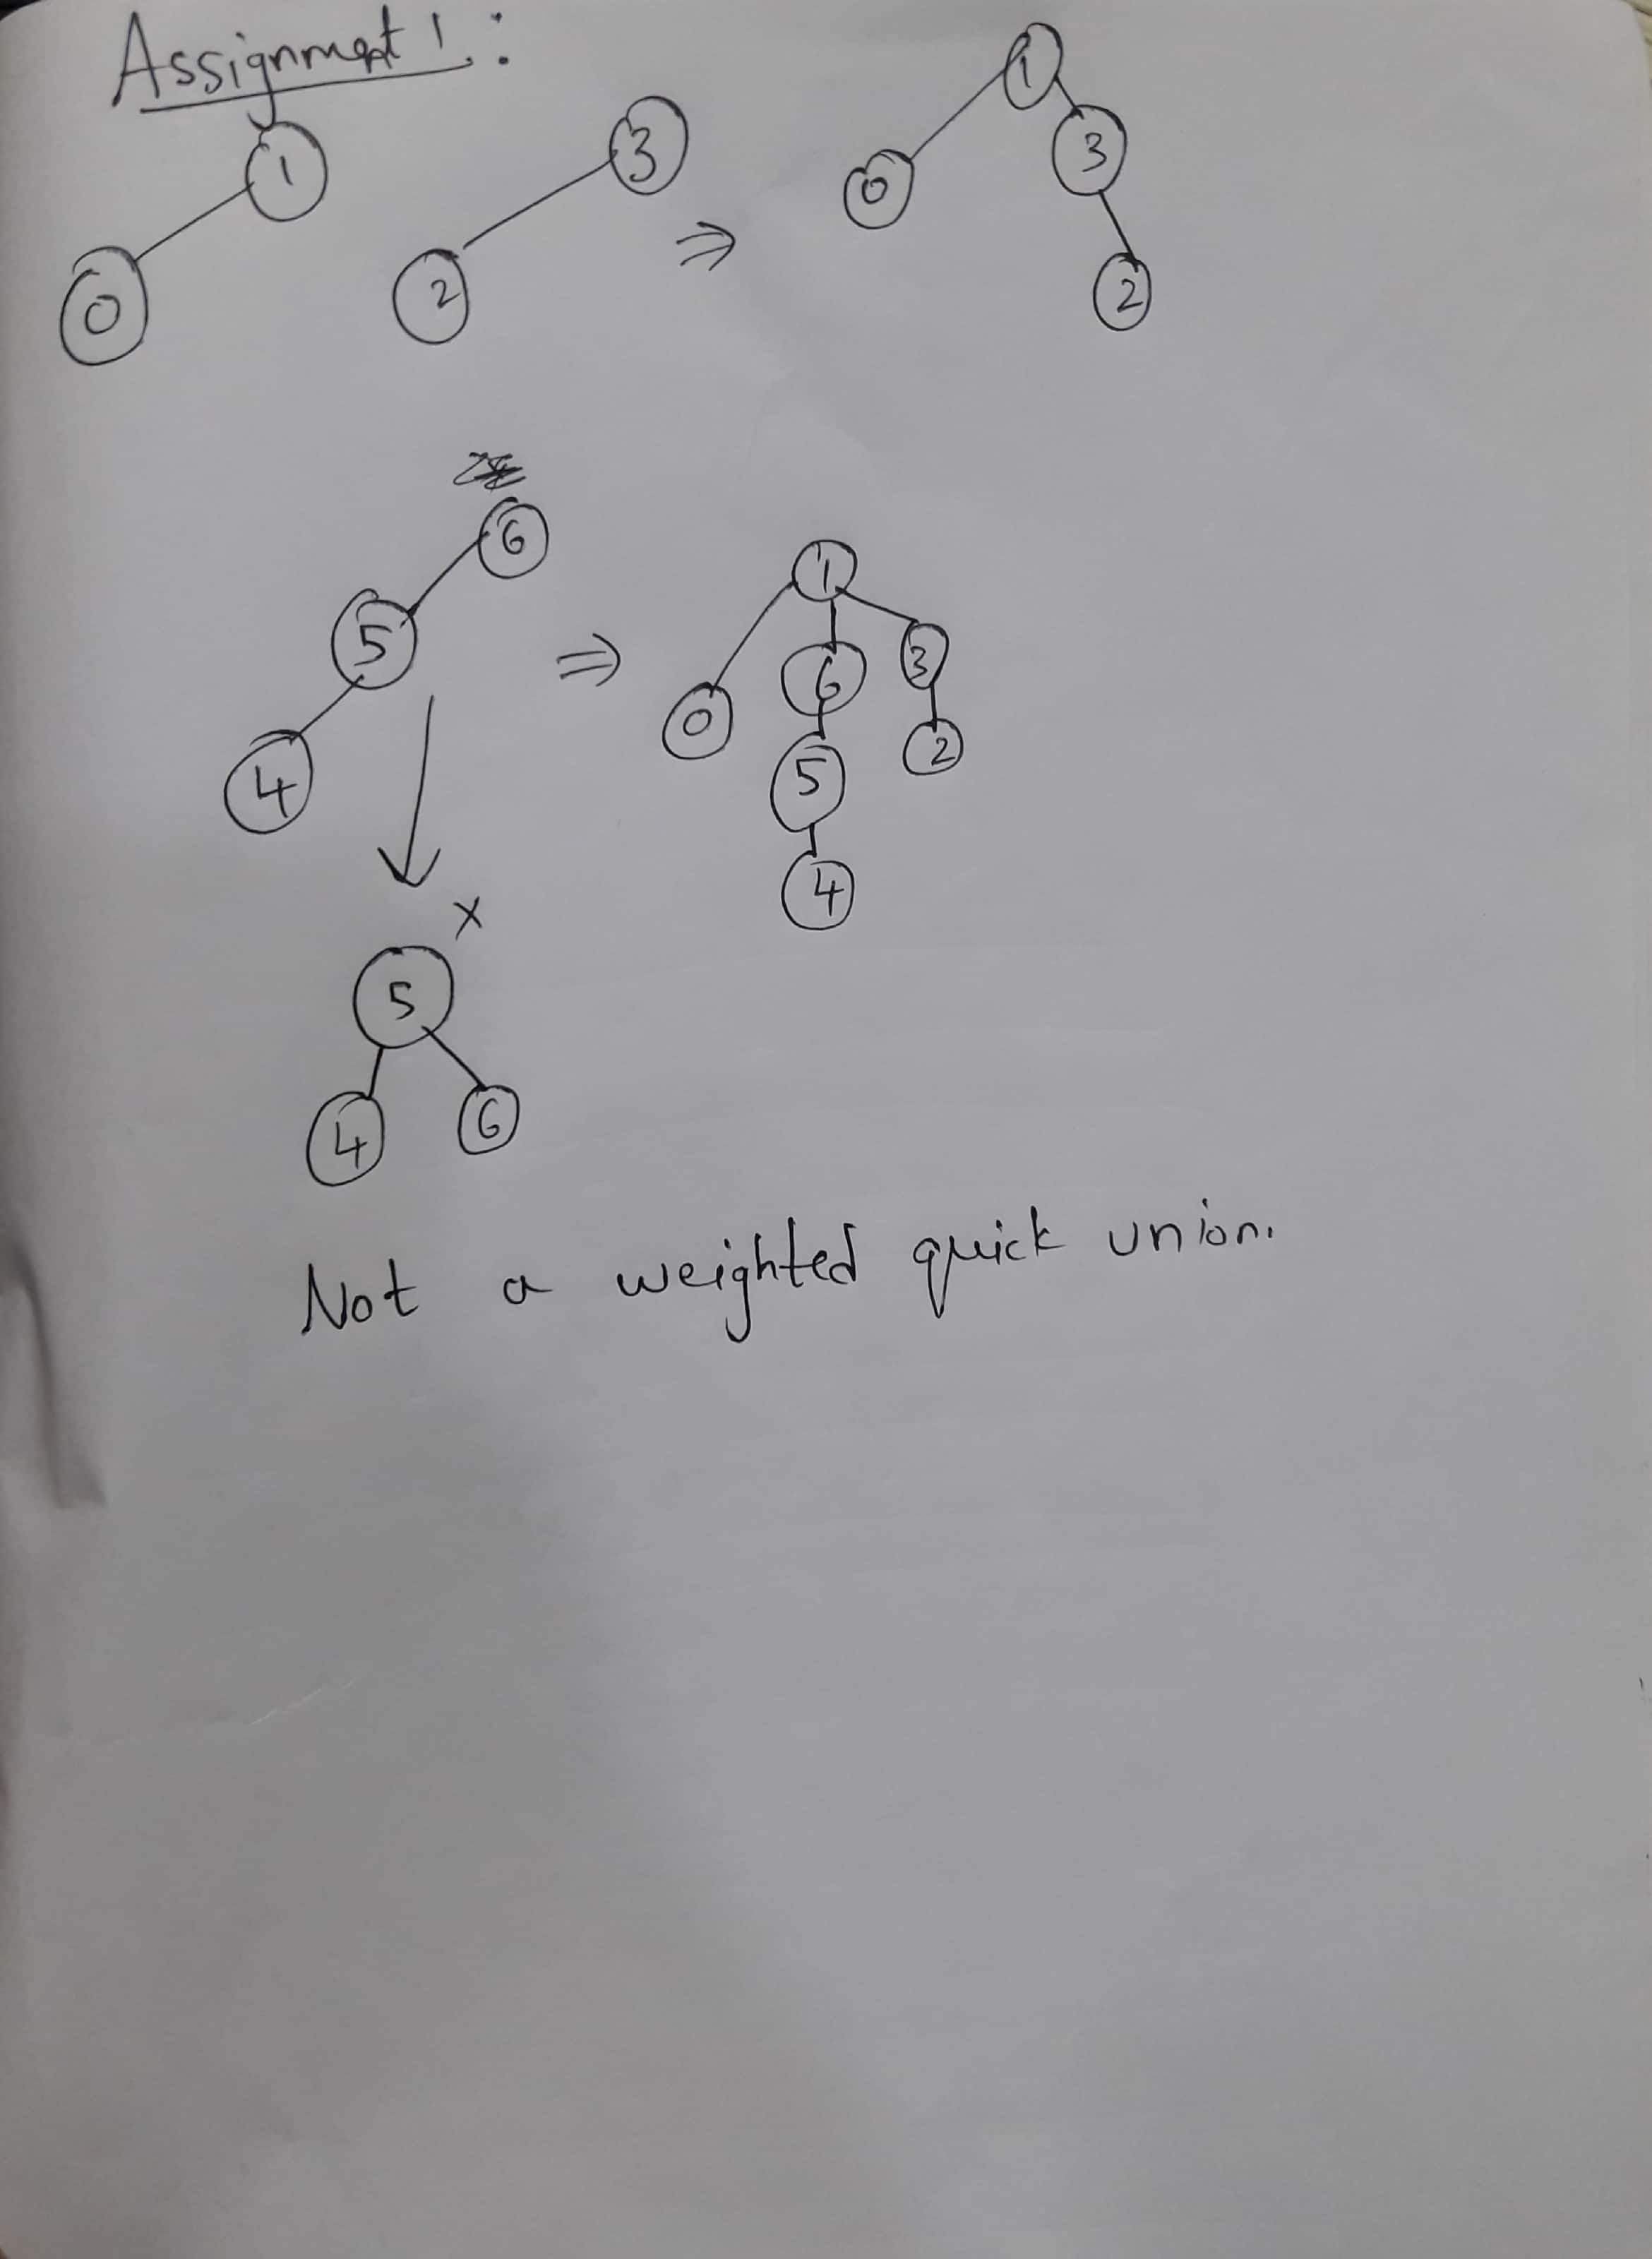 Assignment 1 :
1
0
3
2
⇒
1
0
3
2
6
5
4
⇒
1
0
6
3
5
2
4
x
5
4
6
Not a weighted quick union.